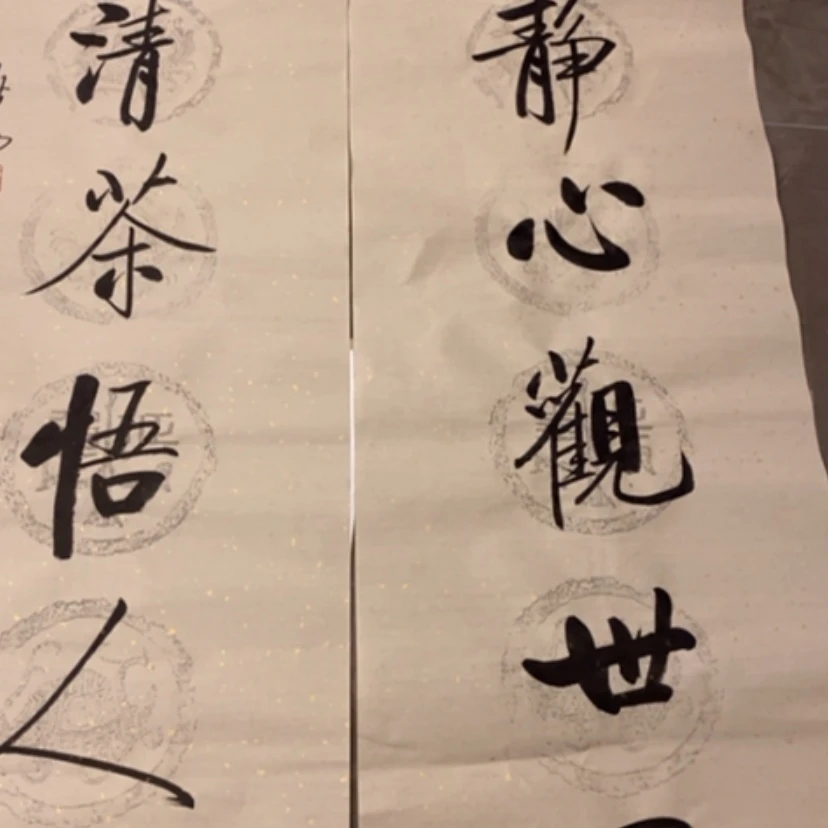 静心觀世
清茶悟人